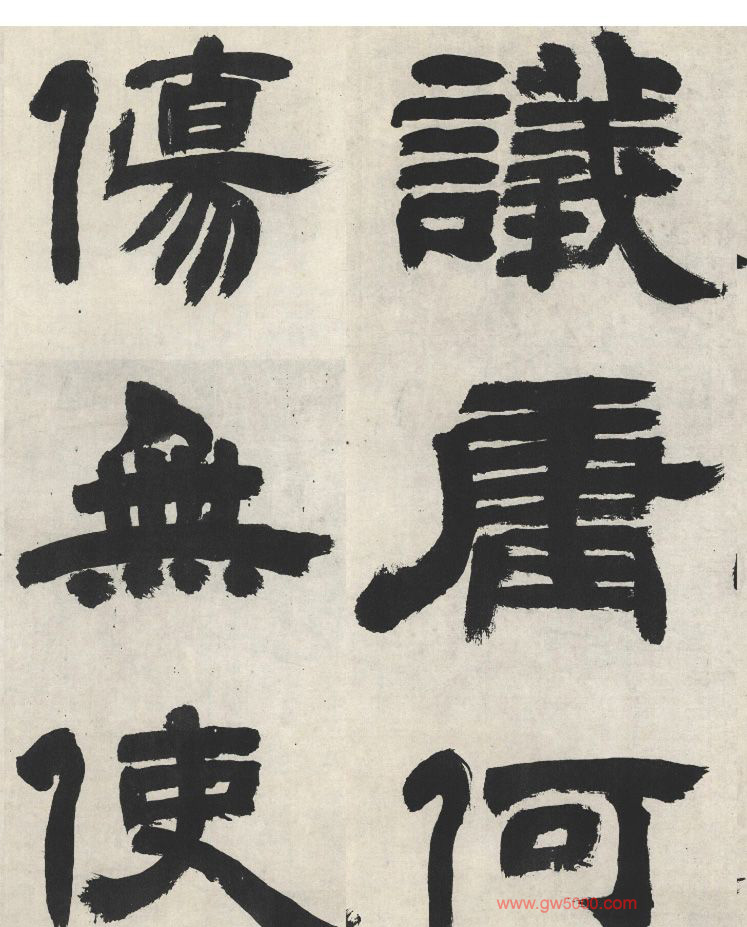 議庸何
傷無使
www.gw5000.com